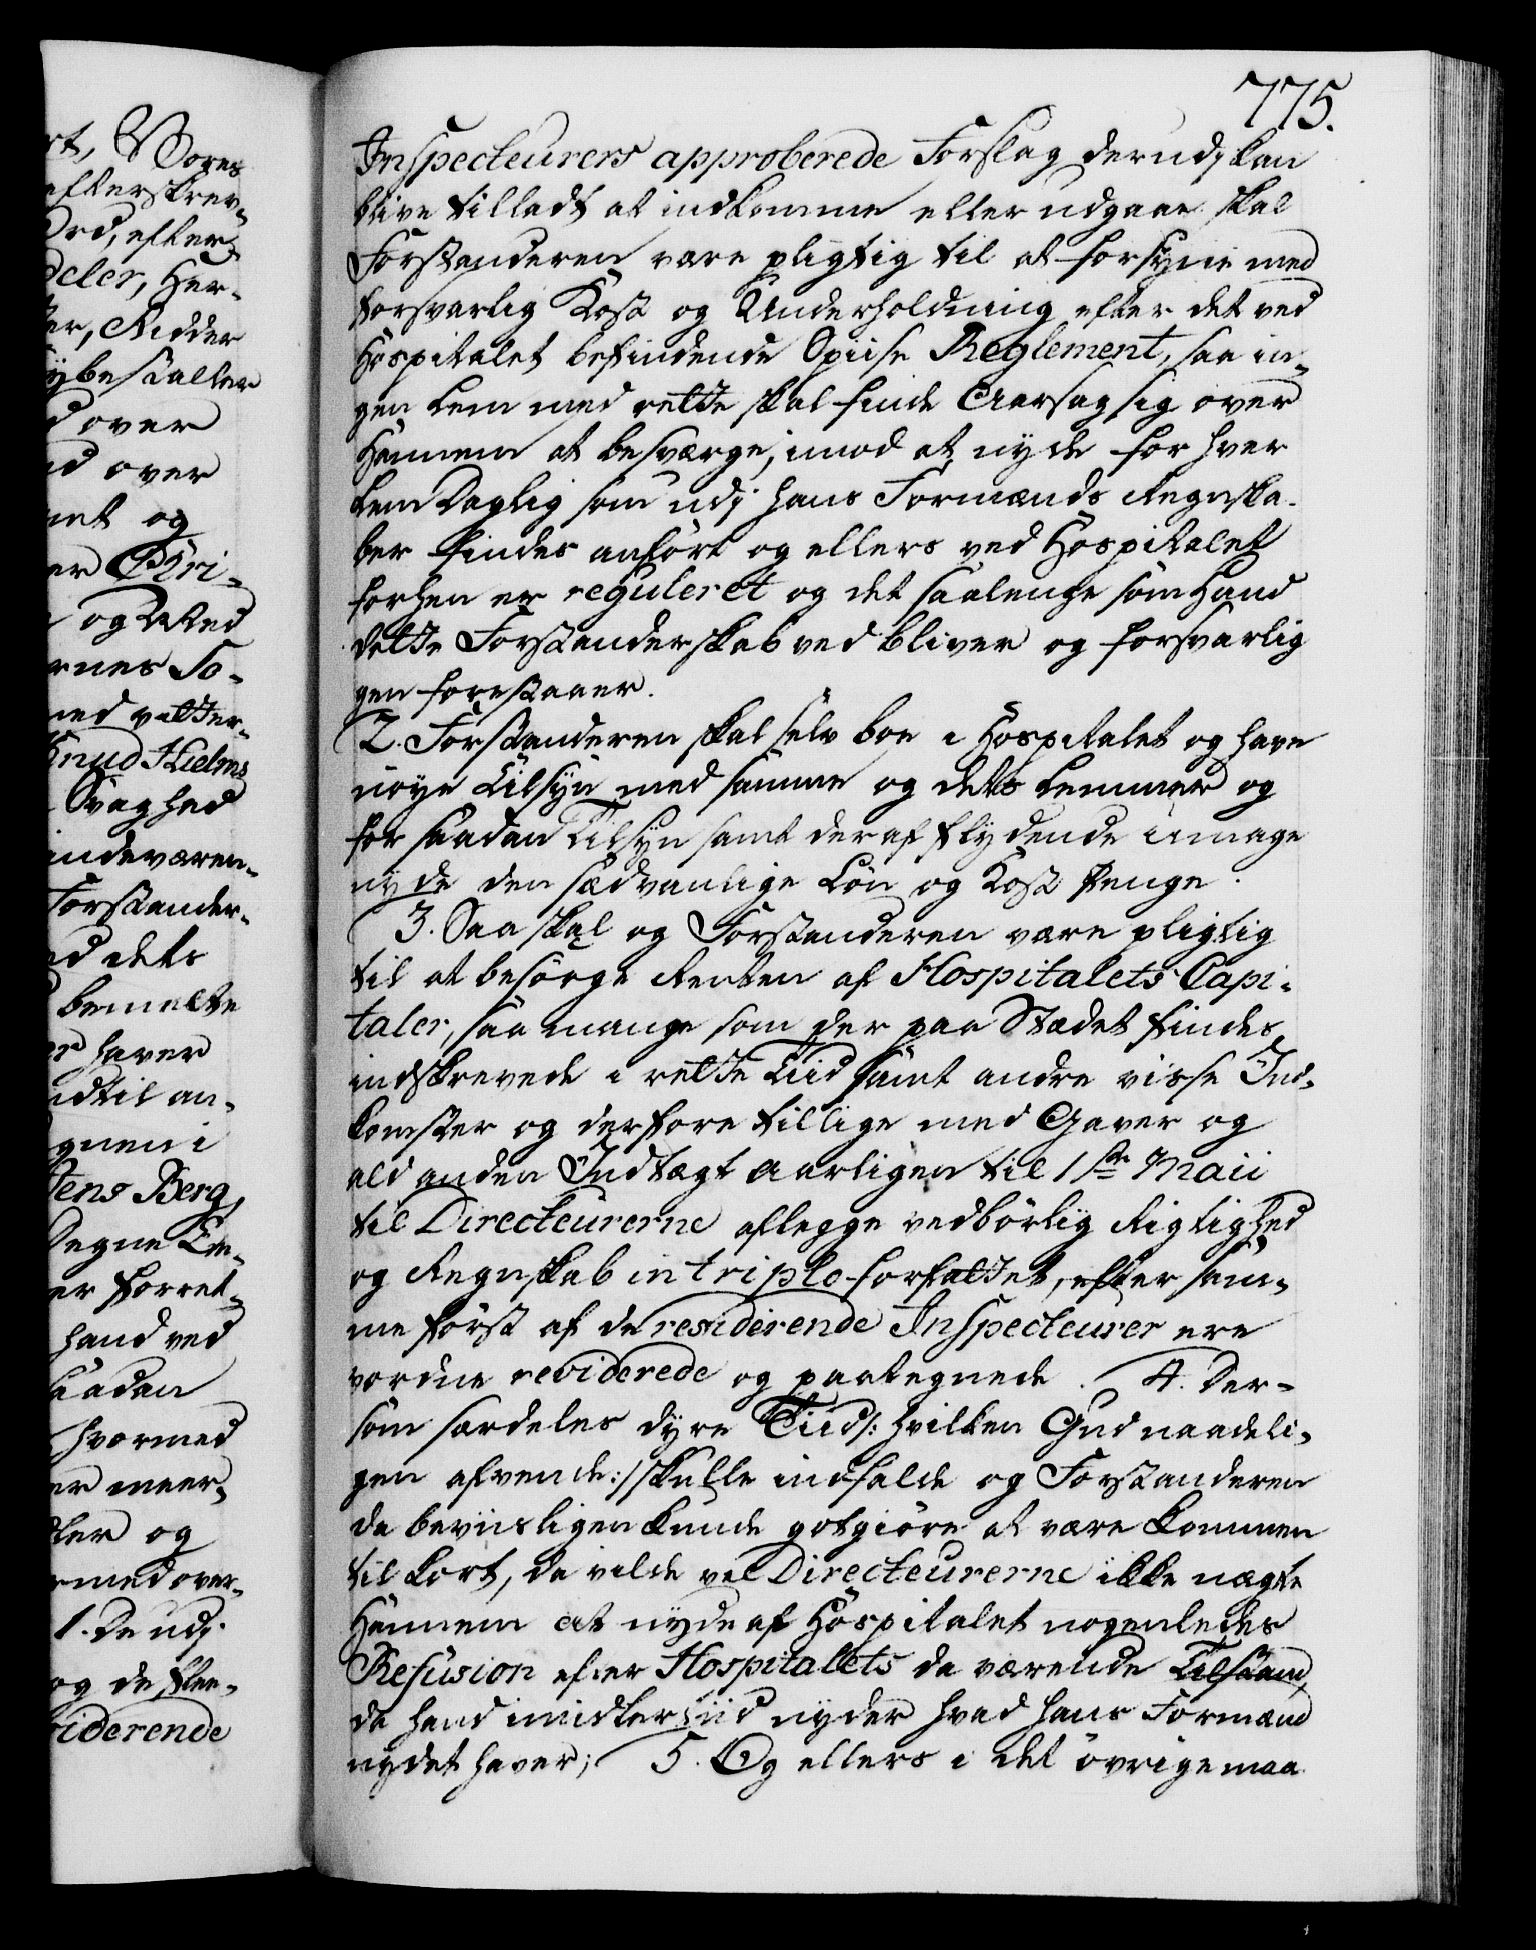 775.
Inspecteurers approberede Forslag derudj kan
blive tilladt at indkomme eller udgaae skal
Forstanderen være pligtig til at forsyne med
forsvarlig Kost og Underholdning efter det ved
Hospitalet befindende Spiise Reglement, saa in-
gen Lem med rette skal finde Aarsag sig over
Hannem at besværge, imod at nyde for hver
Lem Daglig som udj hans Formænds Regnska-
ber findes anført og ellers ved Hospitalet
forhen er reguleret og det saalenge som Hand
dette Forstanderskab ved bliver og forsvarlig
gen forestaaer.
2. Forstanderen skal selv boe i Hospitalet og have
nøye Tilsyn med samme og dets Lemmer og
for saadan Tilsyn samt deraf flydende umage
nyde den sædvanlige Løn og Kost Penge.
3. Saa skal og Forstanderen være pligtig
til at besørge Renten af Hospitalets Capi-
taler, saa mange som der paa Stædet findes
indskrevede i rette Tiid samt andre visse Ind-
komster og derfore tillige med Gaver og
ald anden Indtægt aarligen til 1ste Maii
til Directeurerne aflegge vedbørlig Rigtighed
og Regnskab in triplo forfattet, efter sam-
me først af de residerende Inspecteurer ere
vordne reviderede og paategnede. 4. Der-
som særdeles dyre Tiid /: hvilken Gud naadeli-
gen afvende :/ skulle indfalde og Forstanderen
da beviisligen kunde gotgiøre at være kommen
til kort, da vilde vel Directeurerne ikke nægte
Hannem at nyde af Hospitalet nogenledes
Refusion efter Hospitalets da værende Tilstand,
da hand imidlertiid nyder hvad hans Formand
nydet haver; 5. Og ellers i det øvrige maa